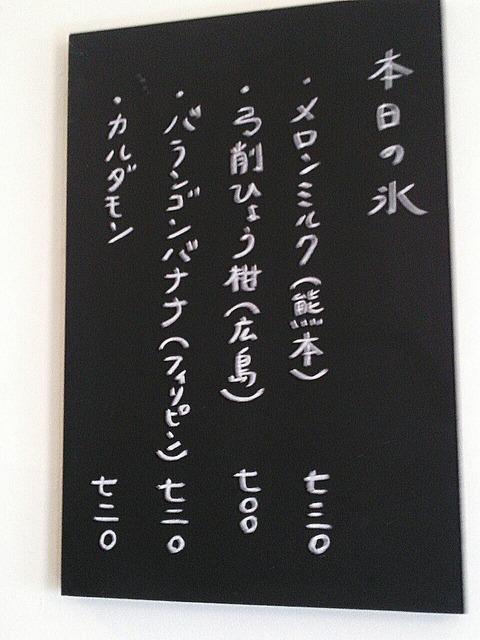 本日の氷
・メロンミルク(熊本) 七三〇
・弓削ひょう柑(広島) 七〇〇
・バランゴンバナナ(フィリピン) 七二〇
・カルダモン 七二〇